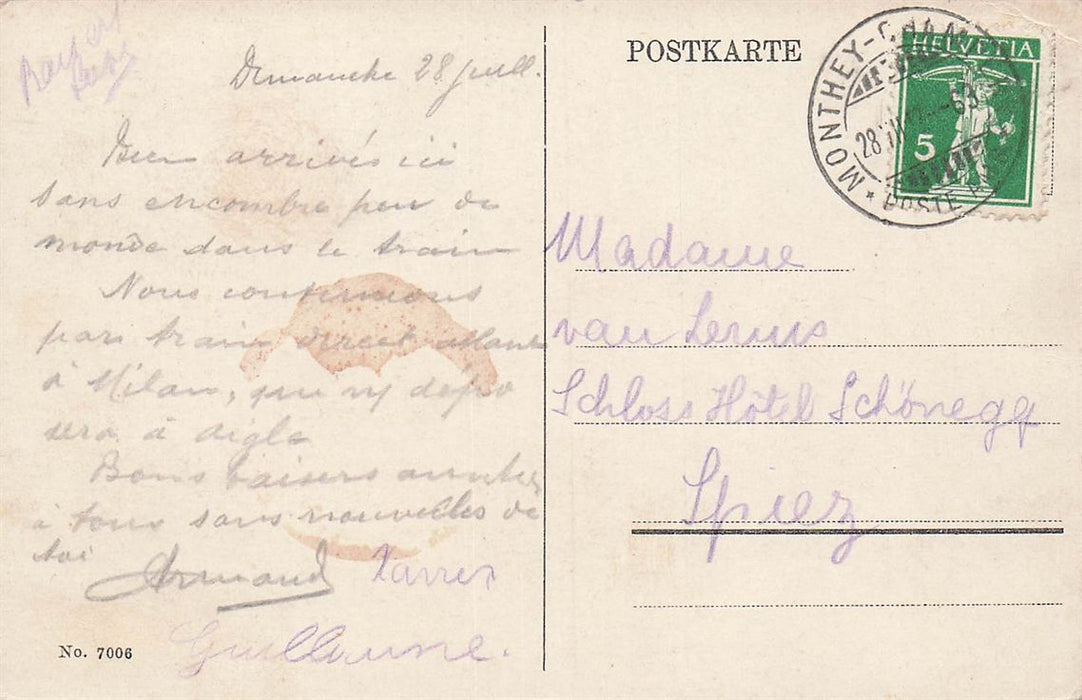 Dimanche 28 Juill.
Bien arrivés ici
sans encombre peu de
monde dans le train
Nous continuons
par train direct allant
à Milan, qui ns dépo
sera à Aigle
Bons baisers
à tous sans nouvelles de
toi
Armand Xavier
Guillaume.
No. 7006
POSTKARTE
HELVETIA
5
MONTHEY-CHAM
28
POSTE
Madame
van Lerius
Schloss Hôtel Schönegg
Spiez